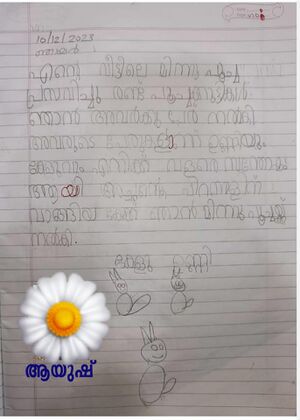 10/12/2023
ഞായർ
എന്റെ വീട്ടിലെ മിന്നു പൂച്ച
പ്രസവിച്ചു രണ്ട് പൂച്ചക്കുട്ടികൾ
ഞാൻ അവർക്കു പേര് നൽകി
അവരുടെ പേരുകളാണ് ഉണ്ണിയും
എനിക്ക് വളരെ സന്തോഷ
മായി അച്ഛന്റെ പിറന്നാളിന്
വാങ്ങിയ കേക്ക് ഞാൻ മിന്നു പൂച്ചക്ക്
നൽകി.
ഉണ്ണി
ആയുഷ്